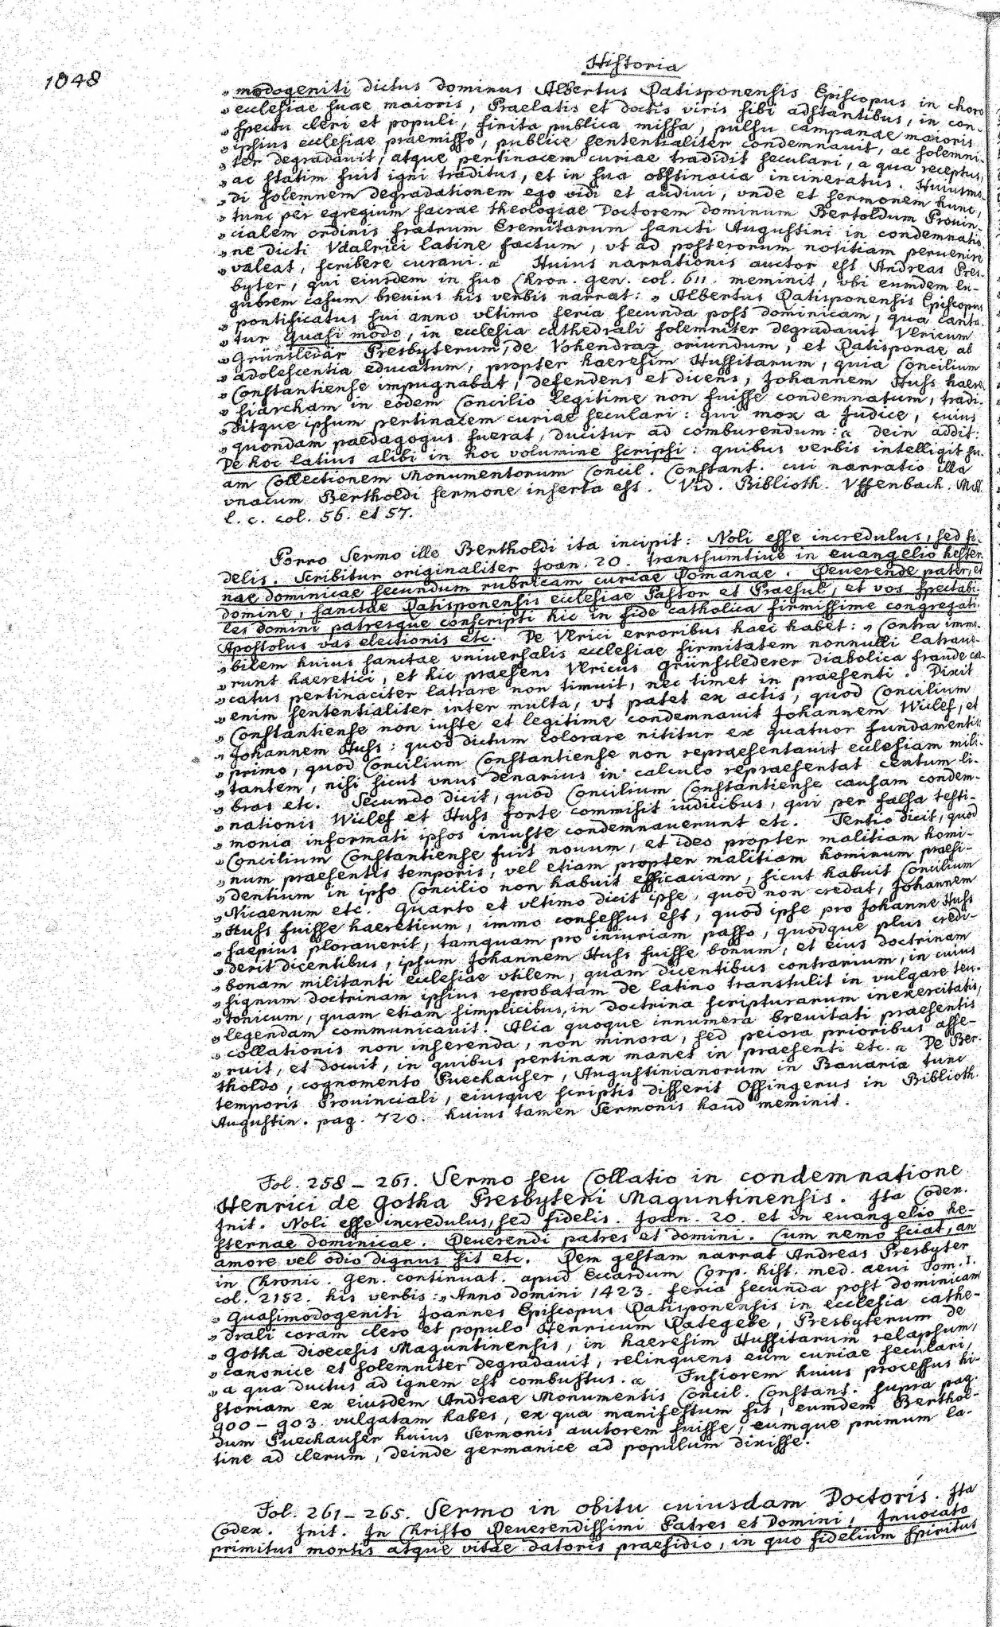 1048
Historia
„ modogeniti dictus dominus Albertus Ratisponensis Episcopus in choro
„ ecclesiae suae maioris, Praelatis et doctis viris sibi adstantibus, in con-
„ spectu cleri et populi, finita publica missa, pulsu campanae maioris
„ ipsius ecclesiae praemisso, publice sententialiter condemnauit, ac solemni-
„ ter degradauit, atque pertinacem curiae tradidit seculari, a qua receptus,
„ ac statim fuit igni traditus, et in sua obstinacia incineratus. Huiusmo-
„ di solemnem degradationem ego vidi et audiui, vnde et sermonem hunc,
„ tunc per egregium sacrae theologiae Doctorem dominum Bertoldum Prouin-
„ cialem ordinis fratrum Eremitarum sancti Augustini in condemnatio-
„ ne dicti Vdalrici latine factum, vt ad posterorum notitiam peruenire
„ valeat, scribere curaui. „ Huius narrationis auctor est Andreas Pres-
byter, qui eiusdem in suo Chron. Gen. col. 611. meminit, vbi eumdem lu-
gubrem casum breuius his verbis narrat: „ Albertus Ratisponensis Episcopus
„ pontificatus sui anno vltimo feria secunda post dominicam, qua canta-
„ tur Quasi modo, in ecclesia cathedrali solemniter degradauit Vlricum
„ Grünsleder Presbyterum, de Vohendraz oriundum, et Ratisponae ab
„ adolescentia educatum, propter haeresim Hussitarum, quia Concilium
„ Constantiense impugnabat, defendens et dicens, Johannem Huss haere-
„ siarcham in eodem Concilio legitime non fuisse condemnatum, tradi-
„ ditque ipsum pertinacem curiae seculari: qui mox a Judice, cuius
„ quondam paedagogus fuerat, ducitur ad comburendum: „ dein addit:
De hoc latius alibi in hoc volumine scripsi: quibus verbis intelligit su-
am Collectionem Monumentorum Concil. Constant. cui narratio illa
vnacum Bertholdi sermone inserta est. Vid. Biblioth. Vffenbach. Msst.
l. c. col. 56. et 57.
Porro Sermo ille Bertholdi ita incipit: Noli esse incredulus, sed fi-
delis. Scribitur originaliter Joan. 20. transsumtiue in euangelio hester-
nae dominicae secundum rubricam curiae Romanae. Reuerende pater, et
domine, sanctae Ratisponensis ecclesiae Pastor et Praesul, et vos spectabi-
les domini patresque conscripti hic in fide catholica firmissime congregati.
Apostolus vas electionis etc. De Vlrici erroribus haec habet: „ Contra immo-
„ bilem huius sanctae vniuersalis ecclesiae firmitatem nonnulli latraue-
„ runt haeretici, et hic praesens Vlricus Grünslederer diabolica fraude ca-
„ catus pertinaciter latrare non timuit, nec timet in praesenti. Dixit
„ enim sententialiter inter multa, vt patet ex actis, quod Concilium
„ Constantiense non iuste et legitime condemnauit Johannem Wiclef, et
„ Johannem Huss: quod dictum colorare nititur ex quatuor fundamentis
„ primo, quod Concilium Constantiense non repraesentauit ecclesiam mili-
„ tantem, nisi sicut vnus denarius in calculo repraesentat centum li-
„ bras etc. Secundo dicit, quod Concilium Constantiense causam condem-
„ nationis Wiclef et Huss forte commisit iudicibus, qui per falsa testi-
„ monia informati ipsos iniuste condemnauerunt etc. Tertio dicit, quod
„ Concilium Constantiense fuit nouum, et ideo propter malitiam homi-
„ num praesentis temporis, vel etiam propter malitiam hominum praesi-
„ dentium in ipso Concilio non habuit efficaciam, sicut habuit Concilium
„ Nicaenum etc. Quarto et vltimo dicit ipse, quod non credat, Johannem
„ Huss fuisse haereticum, immo confessus est, quod ipse pro Johanne Huss
„ saepius plorauerit, tamquam pro iniuriam passo, quodque plus credi-
„ derit dicentibus, ipsum Johannem Huss fuisse bonum, et eius doctrinam
„ bonam militanti ecclesiae vtilem, quam dicentibus contrarium, in cuius
„ signum doctrinam ipsius reprobatam de latino transtulit in vulgare teu-
„ tonicum, quam etiam simplicibus, in doctrina scripturarum inexercitatis,
„ legendam communicauit. Alia quoque innumera breuitati praesentis
„ collationis non inserenda, non minora, sed peiora prioribus asse-
„ ruit, et docuit, in quibus pertinax manet in praesenti etc. „ De Ber-
tholdo, cognomento Puechauser, Augustinianorum in Bauaria tunc
temporis Prouinciali, eiusque scriptis disserit Ossingerus in Biblioth.
Augustin. pag. 720. huius tamen Sermonis haud meminit.
Fol. 258 – 261. Sermo seu Collatio in condemnatione
Henrici de Gotha Presbyteri Maguntinensis. Ita Codex.
Init. Noli esse incredulus, sed fidelis. Joan. 20. et in euangelio he-
sternae dominicae. Reuerendi patres et domini. Cum nemo sciat, an
amore vel odio dignus sit etc. Rem gestam narrat Andreas Presbyter
in Chronic. Gen. continuat. apud Eccardum Corp. hist. med. aeui Tom. I.
col. 2152. his verbis: „ Anno domini 1423. feria secunda post dominicam
„ Quasimodogeniti Joannes Episcopus Ratisponensis in ecclesia cathe-
„ drali coram clero et populo Henricum Rategebe, Presbyterum de
„ Gotha dioecesis Maguntinensis, in haeresim Hussitarum relapsum,
„ canonice et solemniter degradauit, relinquens eum curiae seculari,
„ a qua ductus ad ignem est combustus. „ Fusiorem huius processus hi-
storiam ex eiusdem Andreae Monumentis Concil. Constans. supra pag.
900 – 903. vulgatam habes, ex qua manifestum fit, eumdem Berthol-
dum Puechauser huius Sermonis auctorem fuisse; eumque primum la-
tine ad clerum, deinde germanice ad populum dixisse.
Fol. 261 – 265. Sermo in obitu cuiusdam Doctoris. Ita
Codex. Init. In Christo Reuerendissimi Patres et Domini, Inuocato
primitus mortis atque vitae datoris praesidio, in quo fidelium spiritus